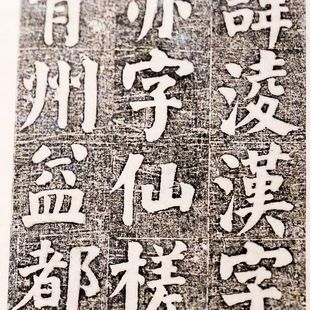 諱淩漢字
亦字仙槎
青州益都